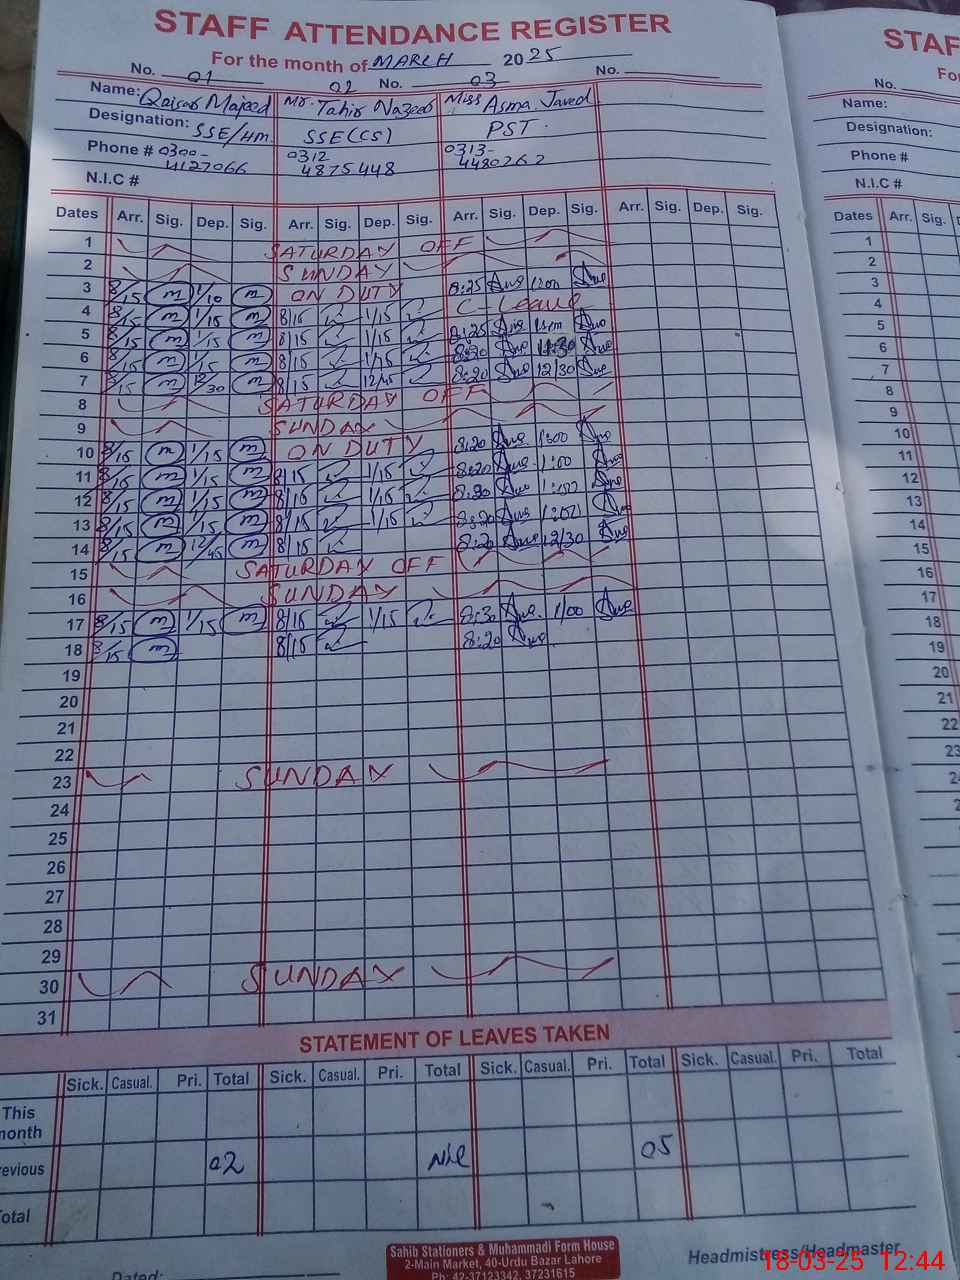 STAFF ATTENDANCE REGISTER
For the month of MARCH 2025
No. 01 02 No. 03 No.
Name: Qaisar Majeed Mr. Tahir Nazeer Miss Asma Javed
Designation: SSE/HM SSE(CS) PST.
Phone # 0300- 0312 0313-
4127066 4875448 4480262
N.I.C #
Dates Arr. Sig. Dep. Sig. Arr. Sig. Dep. Sig. Arr. Sig. Dep. Sig. Arr. Sig. Dep. Sig.
1 SATURDAY OFF
2 SUNDAY
3 8/15 1/10 ON DUTY 8:25
4 8/15 1/15 8/15 1/15 C-Leave
5 8/15 1/15 8/15 1/15 8:25
6 8/15 1/15 8/15 1/15 8:20
7 8/15 12/30 8/15 12/45 8:20 12/30
8 SATURDAY OFF
9 SUNDAY
10 8/15 1/15 ON DUTY 8:20 1:00
11 8/15 1/15 8/15 1/15 8:20 1:00
12 8/15 1/15 8/15 1/15 8:20 1:00
13 8/15 1/15 8/15 1/15 8:20 1:00
14 8/15 12/45 8/15 8:20 12/30
15 SATURDAY OFF
16 SUNDAY
17 8/15 1/15 8/15 1/15 8:30 1/00
18 8/15 8/15 8:20
19
20
21
22
23 SUNDAY
24
25
26
27
28
29
30 SUNDAY
31
STATEMENT OF LEAVES TAKEN
Sick. Casual. Pri. Total Sick. Casual. Pri. Total Sick. Casual. Pri. Total Sick. Casual. Pri. Total
This
month
Previous 02 Nil 05
Total
Sahib Stationers & Muhammadi Form House
2-Main Market, 40-Urdu Bazar Lahore
Ph: 42-37123342, 37231615
Dated:
Headmistress/Headmaster
18-03-25 12:44
STAF
Fo
No.
Name:
Designation:
Phone #
N.I.C #
Dates Arr. Sig.
1
2
3
4
5
6
7
8
9
10
11
12
13
14
15
16
17
18
19
20
21
22
23